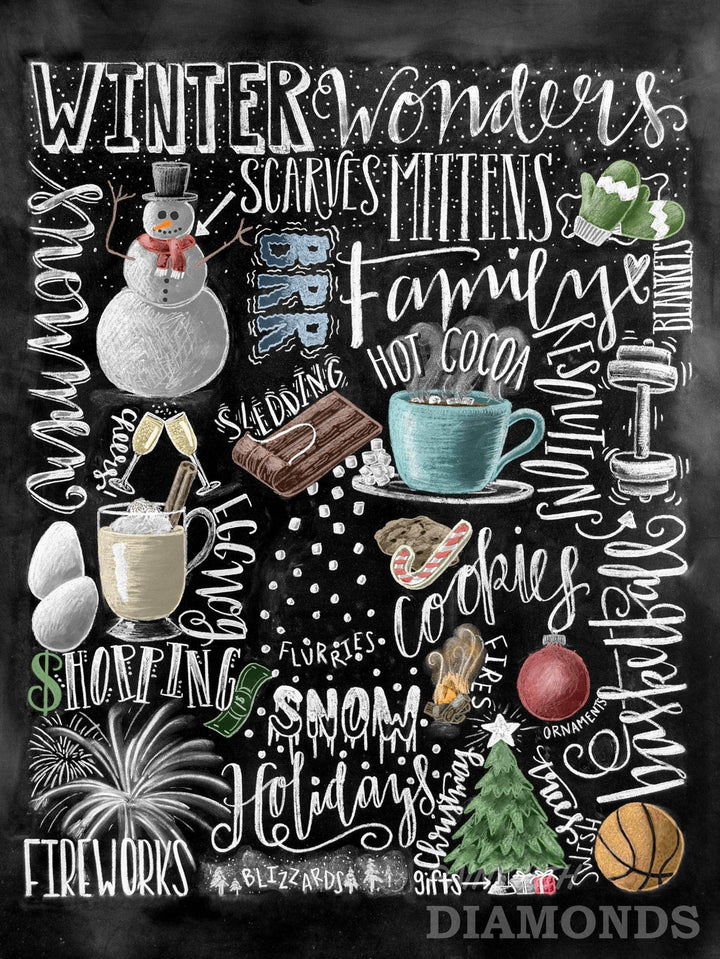 WINTER Wonders
SCARVES
MITTENS
snowman
BRR
Family
BLANKETS
HOT COCOA
RESOLUTIONS
SLEDDING
cheers!
EGGNOG
cookies
basketball
FLURRIES
FIRES
$HOPPING
ORNAMENTS
SNOW
Holidays
Christmas
trees
SWISH
FIREWORKS
BLIZZARDS
gifts
DIAMONDS